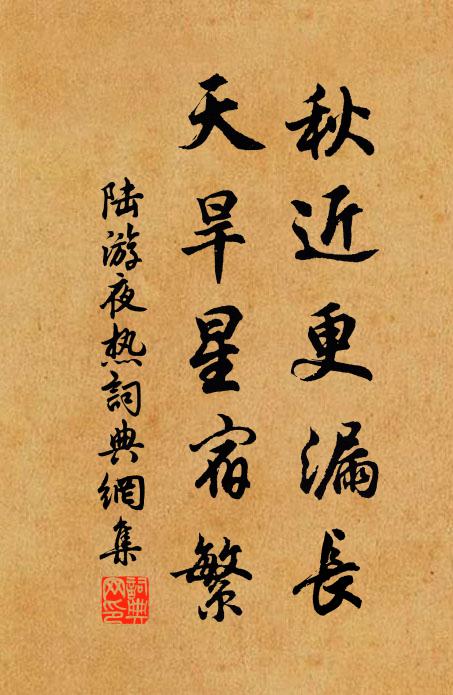 秋近更漏長
天旱星宿繁
陸游夜熱詞典網集
詞典
網印